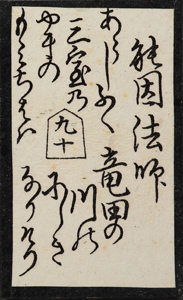 能因法師
あらしふく
三室乃
やまの
もみちはハ
竜田の
川の
にしき
なりけり
九十